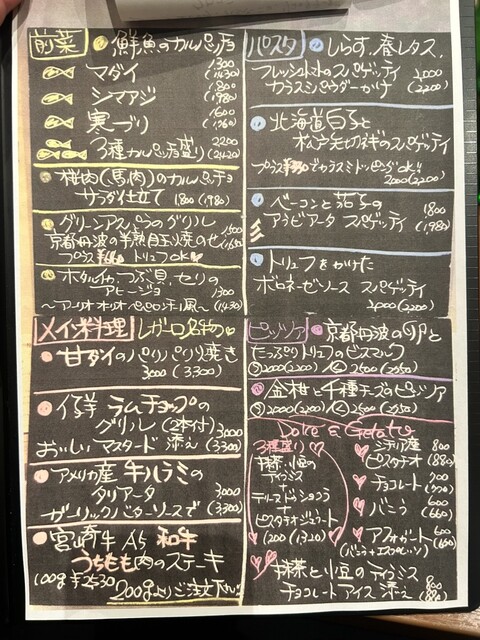 前菜
鮮魚のカルパッチョ
マダイ 1300 (1430)
シマアジ 1800 (1980)
寒ブリ 1600 (1760)
3種カルパッチョ盛り 2200 (2420)
桜肉(馬肉)のカルパッチョ
サラダ仕立て 1800 (1980)
グリーンアスパラのグリル 1500
京都丹波の半熟目玉焼のせ (1650)
トリュフOK
ホタルイカ、つぶ貝、セリの
アヒージョ 1300
〜アーリオオーリオペペロンチーノ風〜 (1430)
メイン料理
レガーロ名物
甘ダイのパリパリ焼き
3000 (3300)
仔羊 ラムチョップの
グリル (2本付) 3000
おいしいマスタード 添え (3300)
アメリカ産 牛ハラミの
タリアータ 3000
ガーリックバターソースで (3300)
宮崎牛 A5 和牛
うちもも肉のステーキ
100g ¥2530
200gよりご注文下さい
パスタ
しらす、春レタス、
フレッシュトマトのスパゲッティ 2000
カラスミパウダーかけ (2200)
北海道白子と
スパゲッティ
カラスミトッピングOK!!
2000 (2200)
ベーコンと茄子の 1800
アラビアータ スパゲッティ (1980)
トリュフをかけた
ボロネーゼソース スパゲッティ
2000 (2200)
ピッツァ
京都丹波の卵と
たっぷりトリュフのビスマルク
Ⓢ2000 (2200) Ⓛ2500 (2750)
金柑と千種チーズのピッツァ
Ⓢ2000 (2200) Ⓛ2500 (2750)
Dolce & Gelato
3種盛り
抹茶、小豆の
ティラミス
+
ピスタチオジェラート
1200 (1320)
シチリア産 800
ピスタチオ (880)
チョコレート 700
(770)
バニラ 600
(660)
アフォガート 600
(バニラ+エスプレッソ) (660)
抹茶と小豆のティラミス
チョコレートアイス 添え 800
(880)